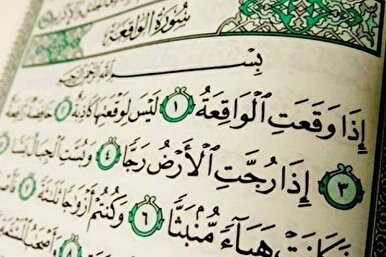 سُورَةُ الوَاقِعَةِ
بِسْمِ اللَّهِ الرَّحْمَٰنِ الرَّحِيمِ
إِذَا وَقَعَتِ ٱلْوَاقِعَةُ ١ لَيْسَ لِوَقْعَتِهَا كَاذِبَةٌ ٢ خَافِضَةٌ رَّافِعَةٌ
٣ إِذَا رُجَّتِ ٱلْأَرْضُ رَجًّا ٤ وَبُسَّتِ ٱلْجِبَالُ بَسًّا
فَكَانَتْ هَبَآءً مُّنۢبَثًّا ٦ وَكُنتُمْ أَزْوَٰجًا ثَلَٰثَةً ٧